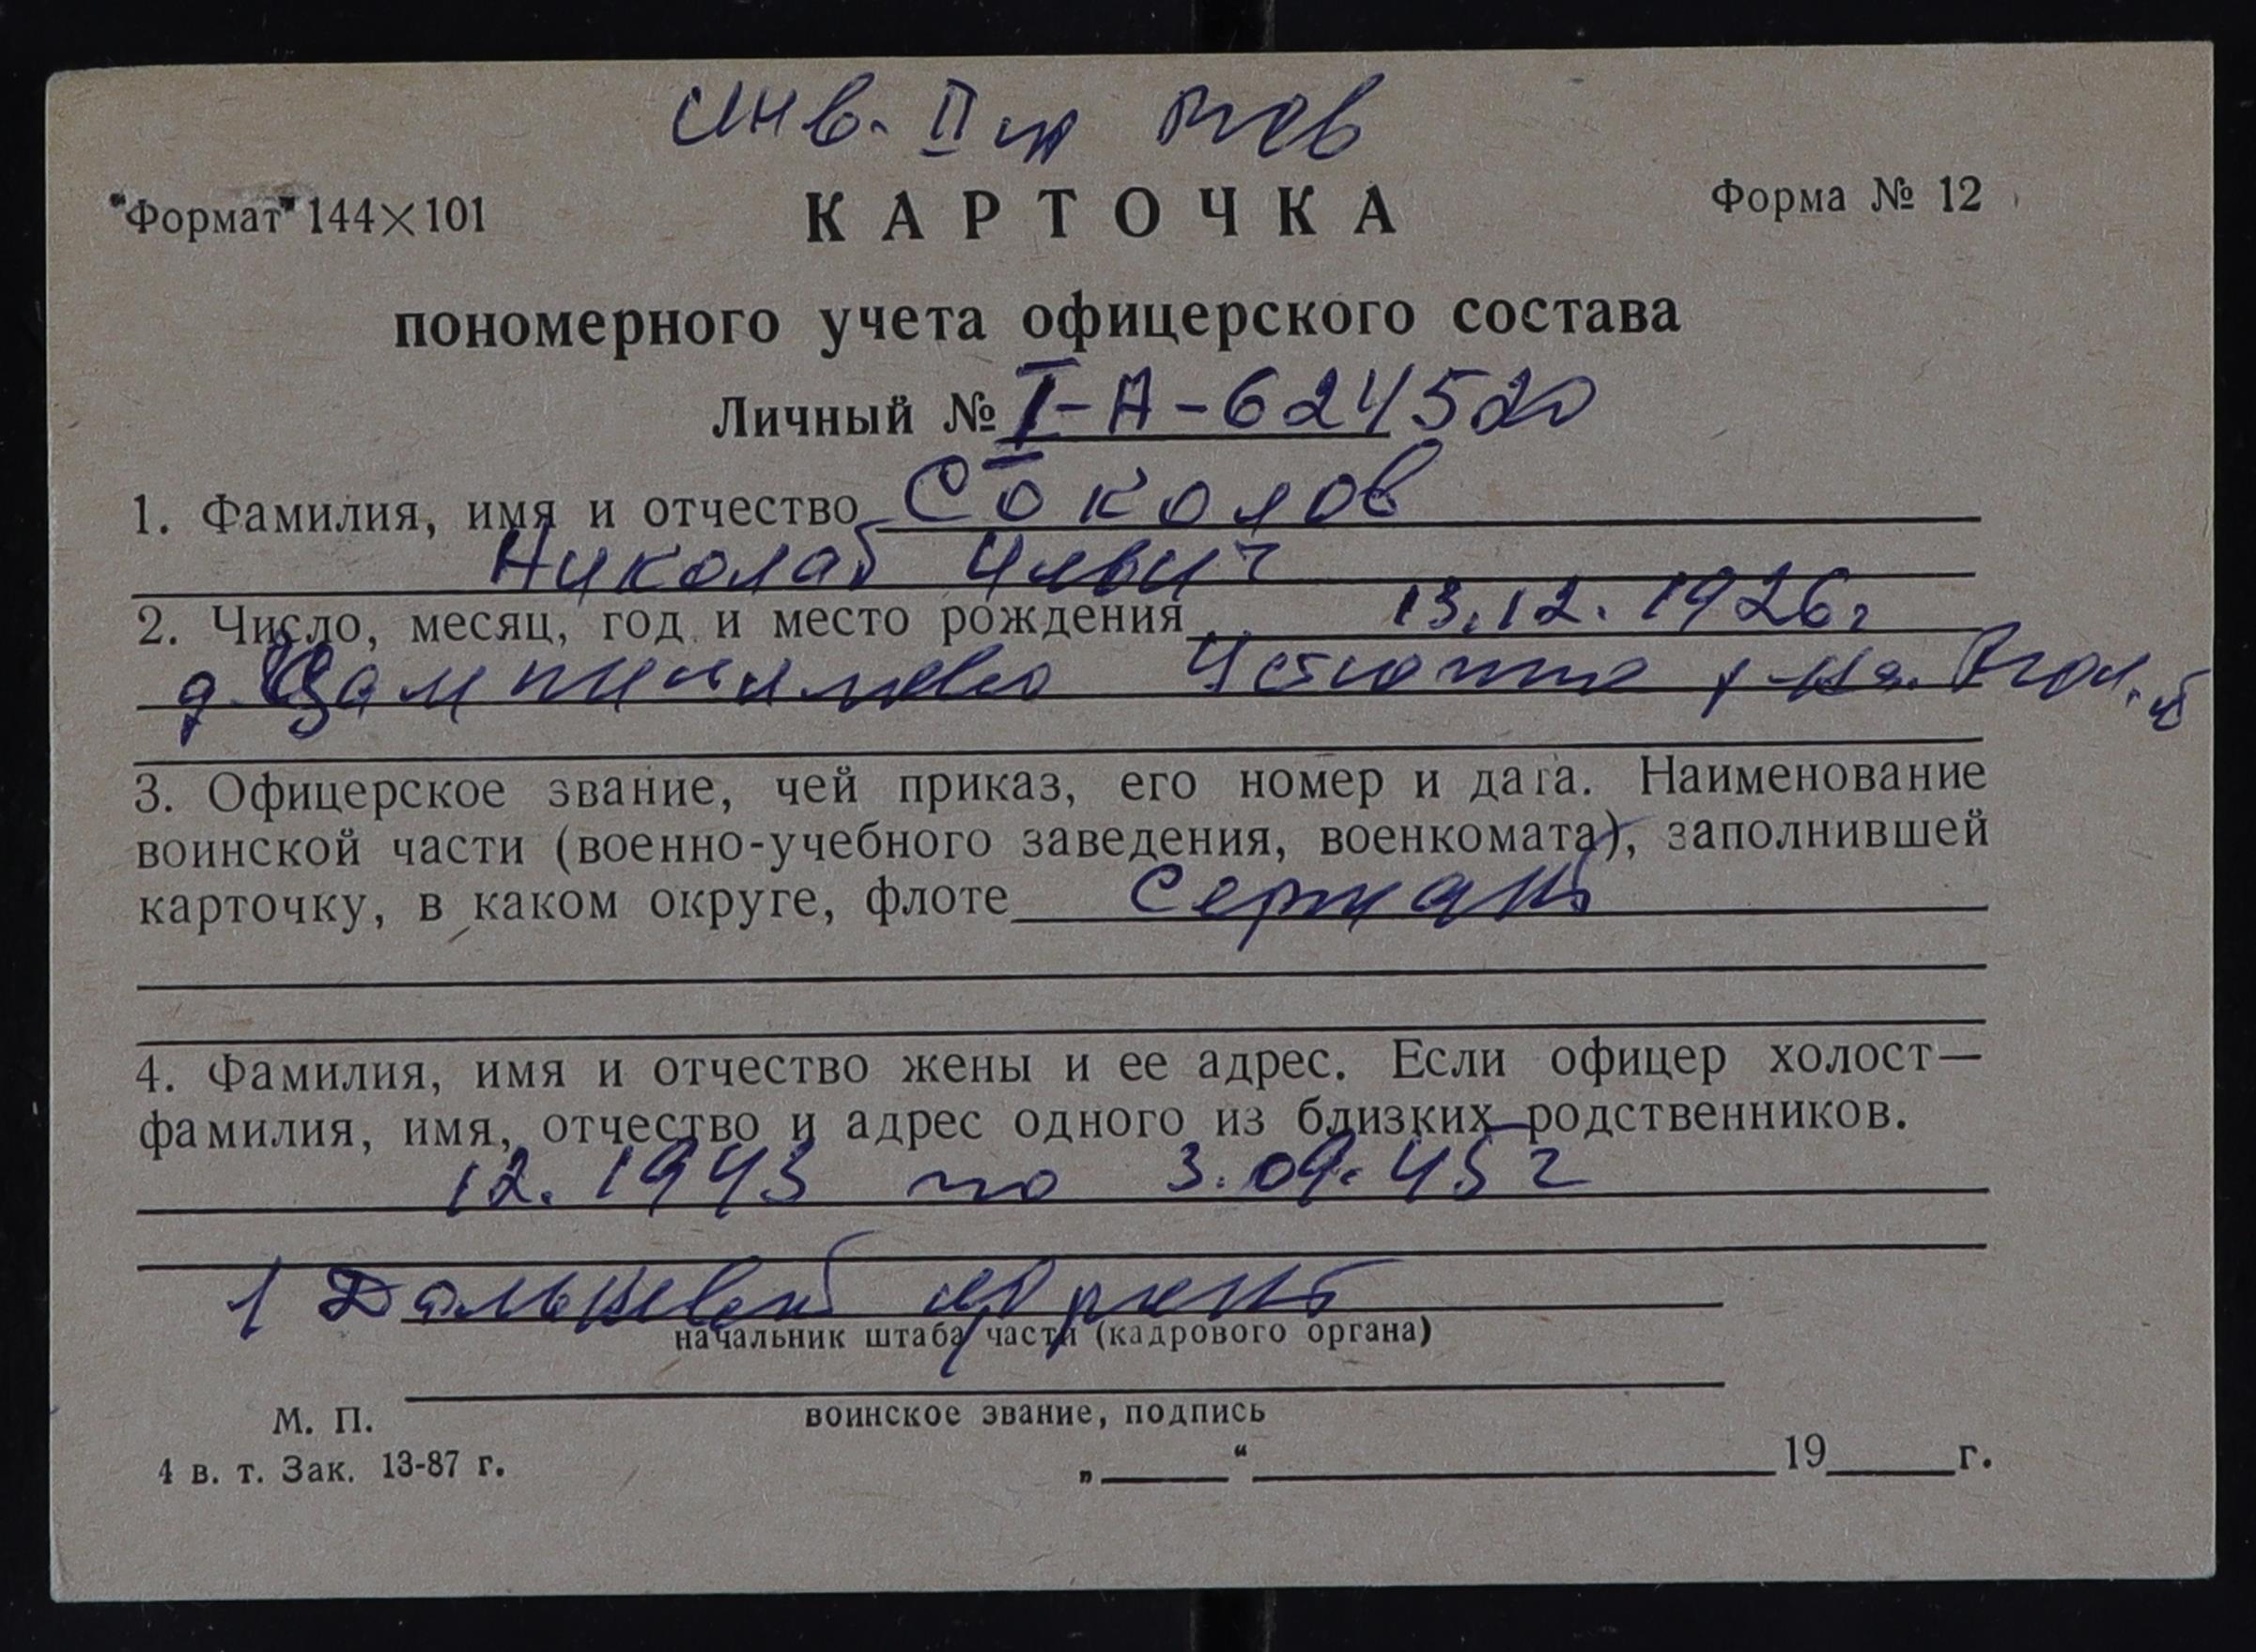 Инв. II гр ВОВ
"Формат" 144×101
КАРТОЧКА
Форма № 12
пономерного учета офицерского состава
Личный № I-А-624520
1. Фамилия, имя и отчество Соколов
Николай Ильич
2. Число, месяц, год и место рождения 13.12.1926г
д. Устюжно р-на Вол. о
3. Офицерское звание, чей приказ, его номер и дата. Наименование
воинской части (военно-учебного заведения, военкомата), заполнившей
карточку, в каком округе, флоте Сержант
4. Фамилия, имя и отчество жены и ее адрес. Если офицер холост—
фамилия, имя, отчество и адрес одного из близких родственников.
12.1943 по 3.09.45г
1 Дальнев фронт
начальник штаба части (кадрового органа)
воинское звание, подпись
М. П.
4 в. т. Зак. 13-87 г.
„ “ 19 г.